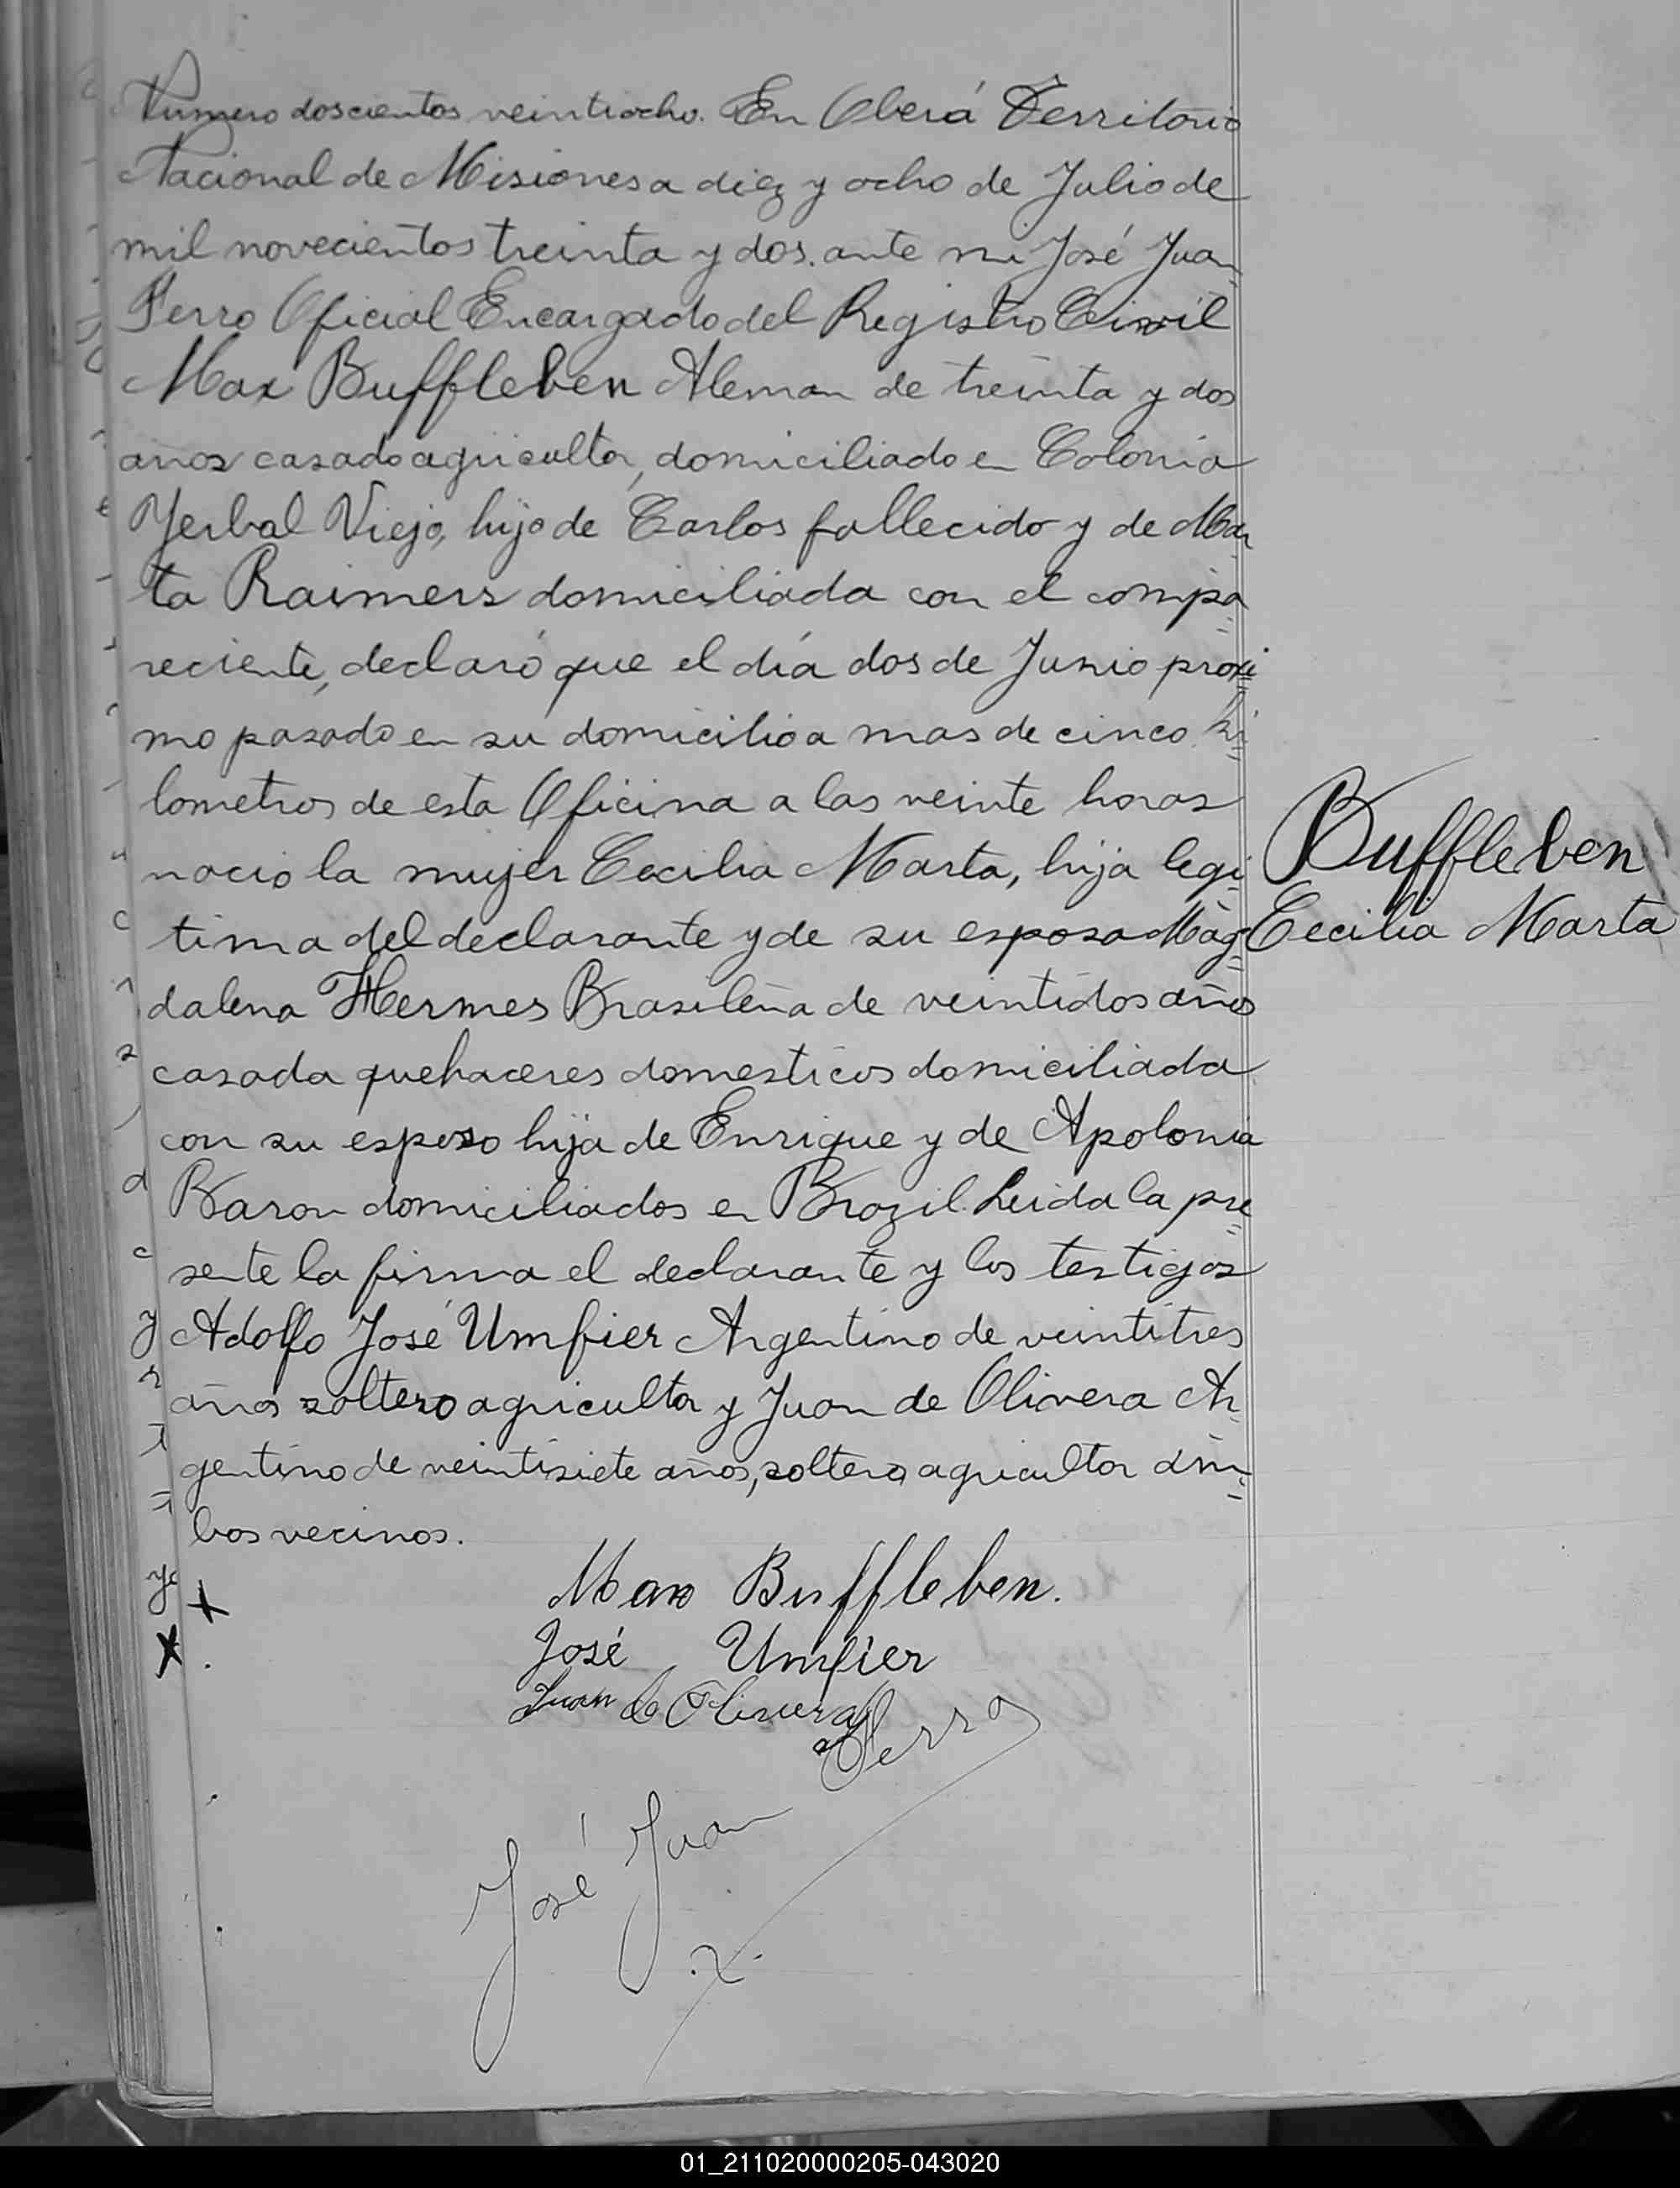 Numero doscientos veintiocho. En Oberá Territorio
Nacional de Misiones a diez y ocho de Julio de
mil novecientos treinta y dos. ante mi José Juan
Ferro Oficial Encargado del Registro Civil
Max Buffleben Aleman de treinta y dos
años casado agricultor, domiciliado en Colonia
Yerbal Viejo, hijo de Carlos fallecido y de Mar
ta Raimers domiciliada con el compa
reciente, declaró que el día dos de Junio proxi
mo pasado en su domicilio a mas de cinco ki
lometros de esta Oficina a las veinte horas
nacio la mujer Cecilia Marta, hija legi
tima del declarante y de su esposa Mag
dalena Hermes Brasileña de veintidos años
casada quehaceres domesticos domiciliada
con su esposo hija de Enrique y de Apolonia
Baron domiciliados en Brazil. Leida la pre
sente la firma el declarante y los testigos
Adolfo José Umfier Argentino de veintitres
años soltero agricultor y Juan de Olivera Ar
gentino de veintisiete años, soltero agricultor am
bos vecinos.
Buffleben
Cecilia Marta
Max Buffleben.
José Umfier
Juan de Olivera
José Juan Ferro
01_211020000205-043020